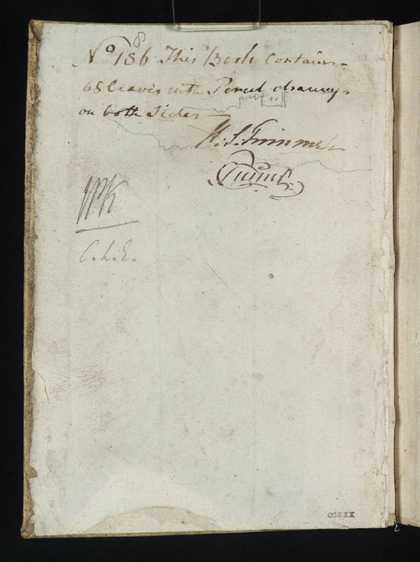 8
No 186 This Book contains
68 leaves with Pencil drawings
on both Sides
H. S. Trimmer
C Turner
JPK
C.L.E.